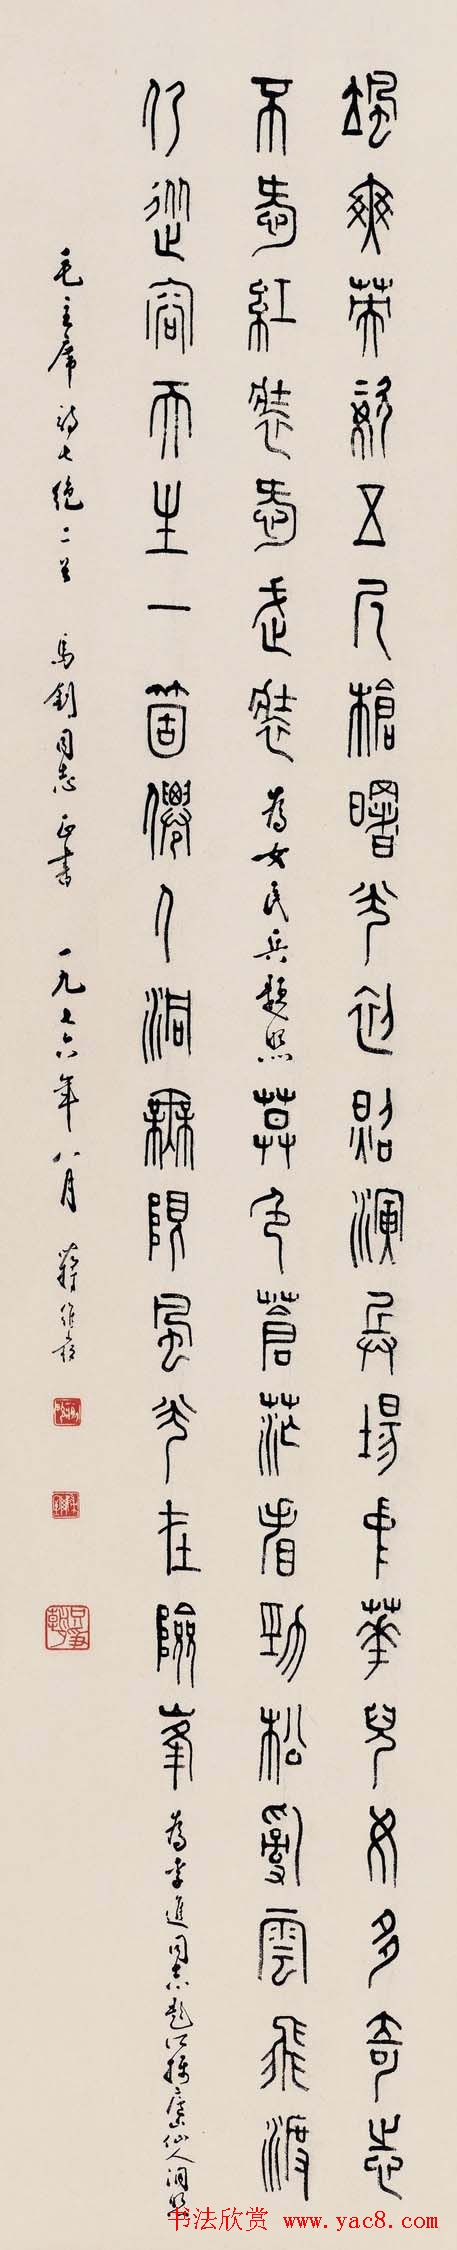 颯爽英姿五尺槍曙光初照演兵場中華兒女多奇志
不愛紅裝愛武裝 為女民兵題照 暮色蒼茫看勁松亂雲飛渡
仍從容天生一箇僊人洞無限風光在險峯 為李進同志題所攝廬山仙人洞照
毛主席詩七絕二首 馬釗同志正書 一九七六年八月 蔣維崧
书法欣赏 www.yac8.com